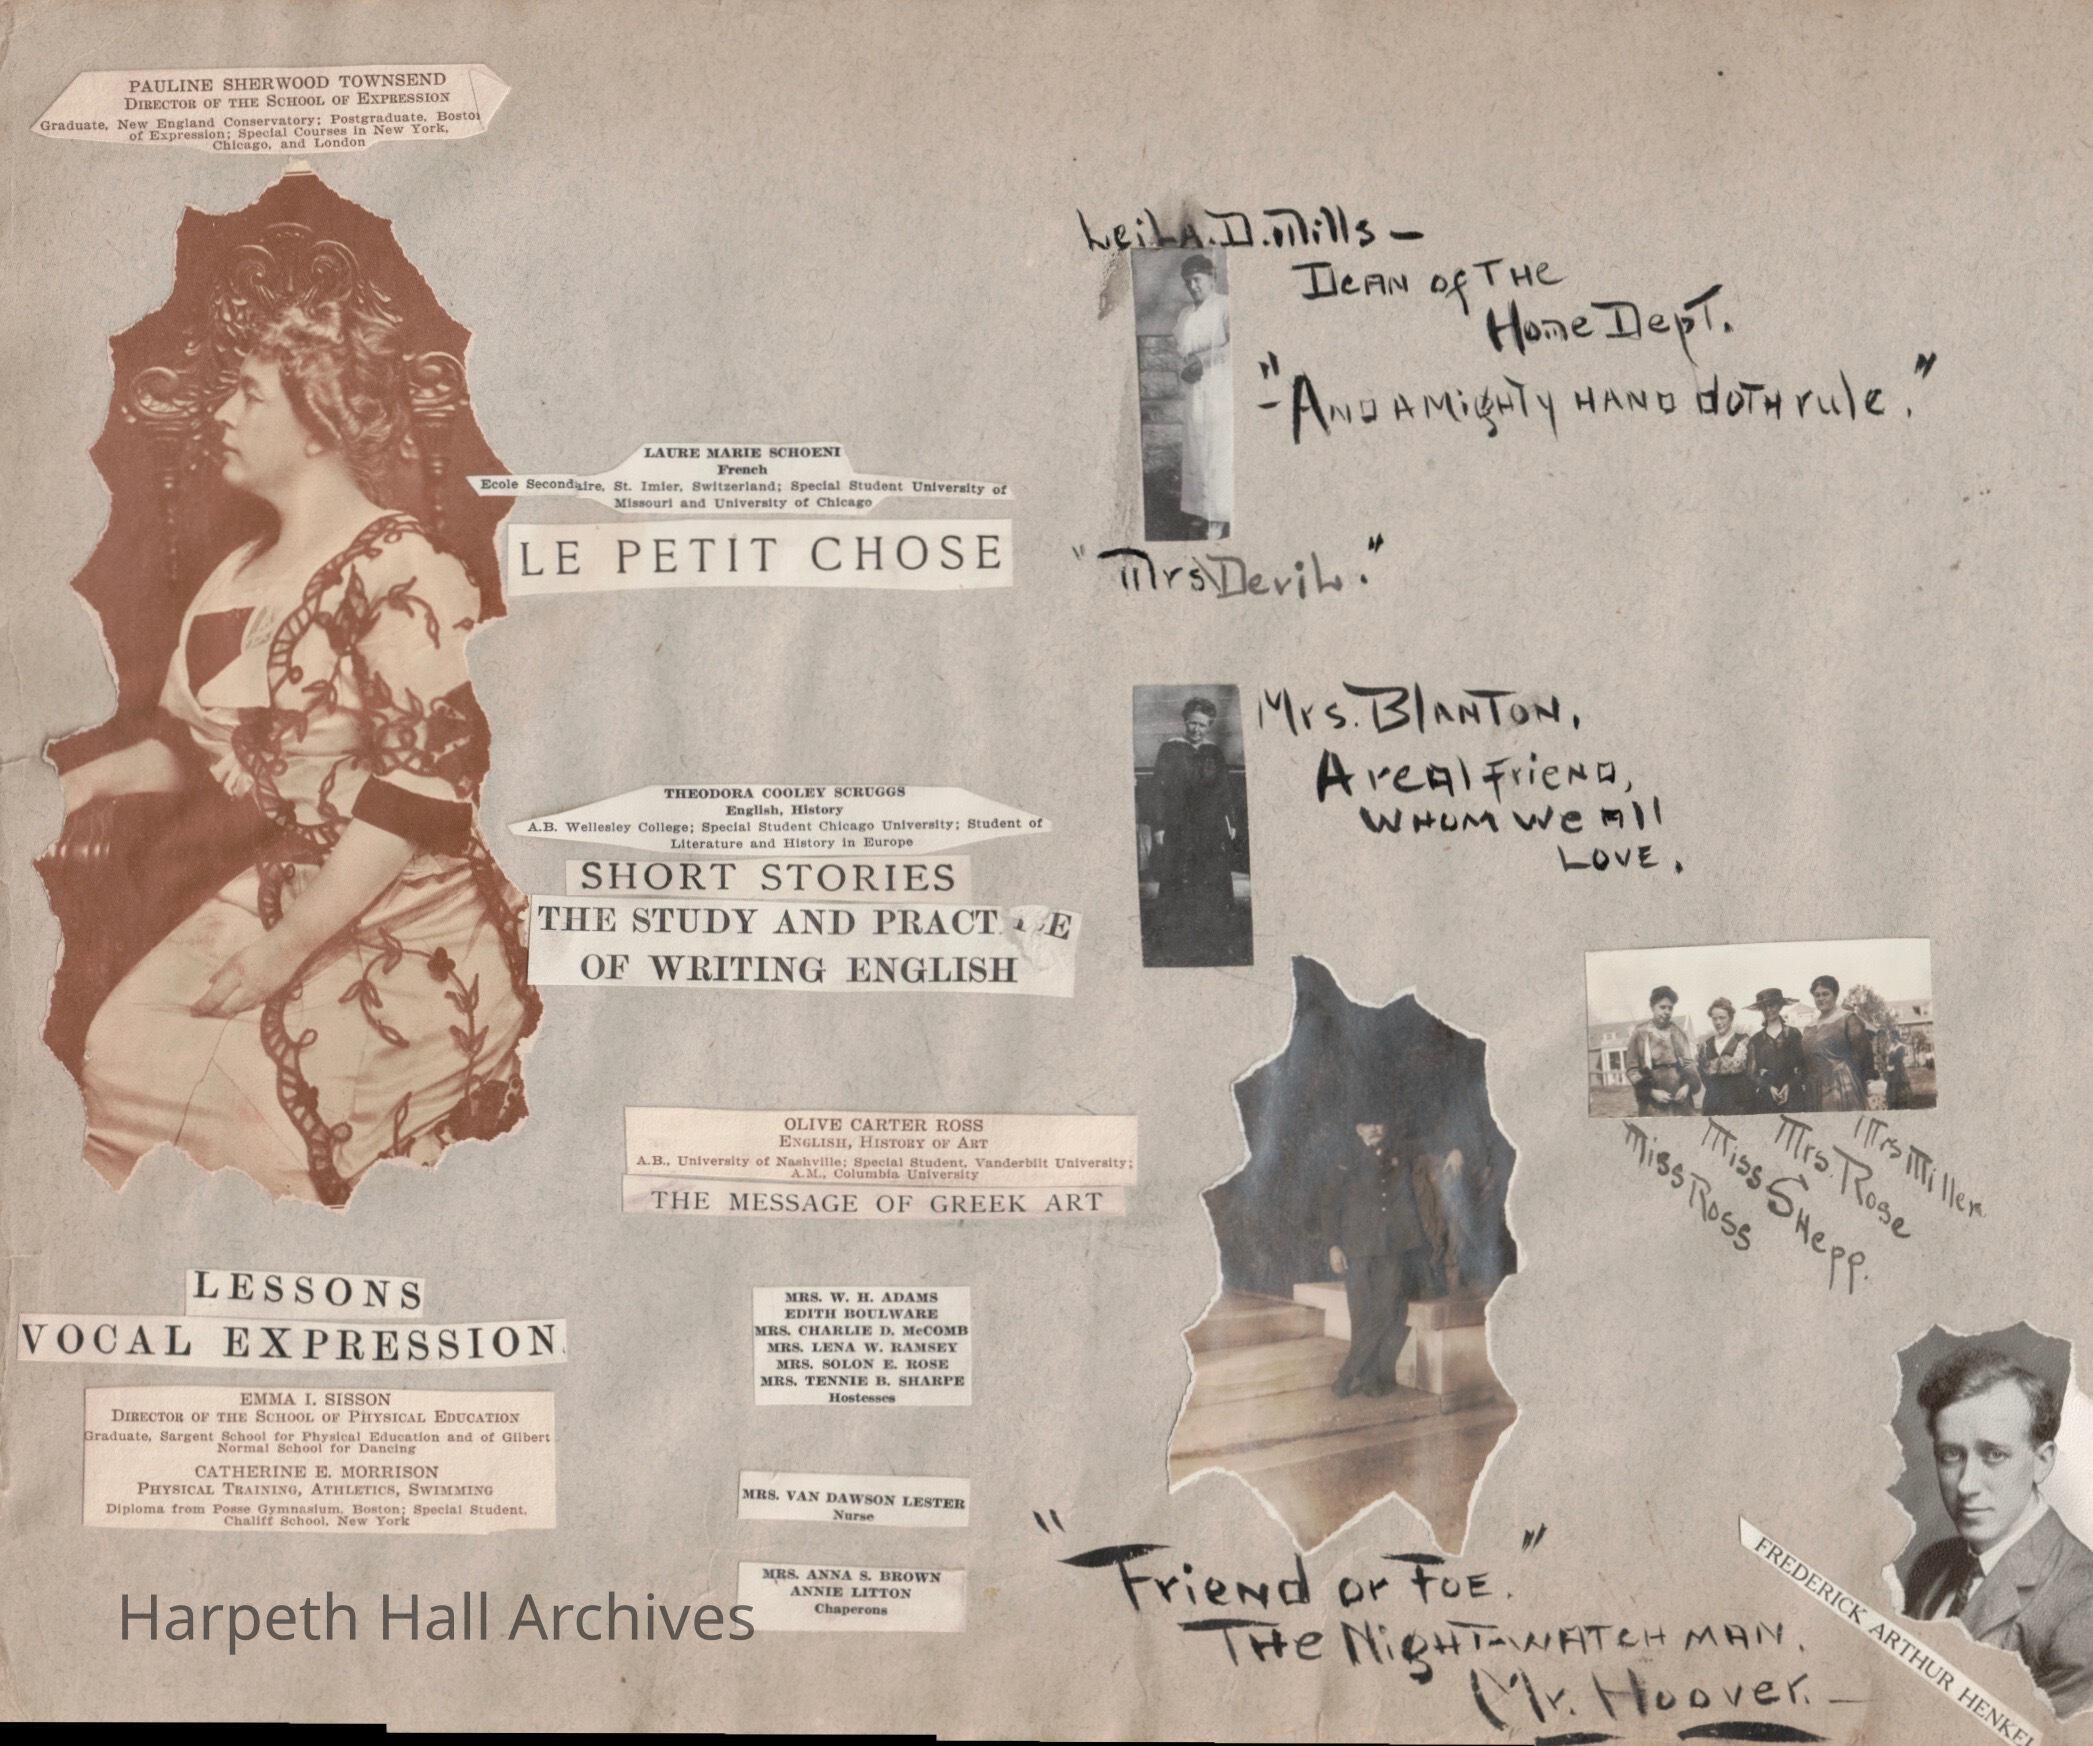 PAULINE SHERWOOD TOWNSEND
DIRECTOR OF THE SCHOOL OF EXPRESSION
Graduate, New England Conservatory; Postgraduate, Bosto
of Expression; Special Courses in New York,
Chicago, and London
LAURE MARIE SCHOENI
French
Ecole Secondaire, St. Imier, Switzerland; Special Student University of
Missouri and University of Chicago
LE PETIT CHOSE
THEODORA COOLEY SCRUGGS
English, History
A.B. Wellesley College; Special Student Chicago University; Student of
Literature and History in Europe
SHORT STORIES
THE STUDY AND PRACTICE
OF WRITING ENGLISH
OLIVE CARTER ROSS
ENGLISH, HISTORY OF ART
A.B., University of Nashville; Special Student, Vanderbilt University;
A.M., Columbia University
THE MESSAGE OF GREEK ART
LESSONS
VOCAL EXPRESSION
EMMA I. SISSON
DIRECTOR OF THE SCHOOL OF PHYSICAL EDUCATION
Graduate, Sargent School for Physical Education and of Gilbert
Normal School for Dancing
CATHERINE E. MORRISON
PHYSICAL TRAINING, ATHLETICS, SWIMMING
Diploma from Posse Gymnasium, Boston; Special Student,
Chaliff School, New York
MRS. W. H. ADAMS
EDITH BOULWARE
MRS. CHARLIE D. McCOMB
MRS. LENA W. RAMSEY
MRS. SOLON E. ROSE
MRS. TENNIE B. SHARPE
Hostesses
MRS. VAN DAWSON LESTER
Nurse
MRS. ANNA S. BROWN
ANNIE LITTON
Chaperons
Harpeth Hall Archives
Leila.D.Mills –
Dean of The
Home Dept.
"–And a Mighty hand doth rule."
"Mrs Devil."
Mrs. Blanton,
A real friend,
whom we all
love.
Miss Ross
Miss Shepp.
Mrs. Rose
Mrs Miller
"Friend or Foe."
The Night-watch man.
Mr. Hoover. –
FREDERICK ARTHUR HENKEL